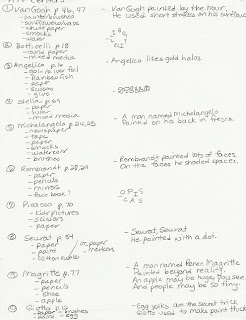 ① Van Gogh p. 46, 47
- white paper
- smocks
- water
- Van Gogh painted by the hour,
He used short strokes on his sunflower
② Botticelli p. 18
- round paper
- mixed media
③ Angelico p.
- gold/silver foil
- Rainbow fish
- paper
- scissors
- glue
- Angelico likes gold halos
④ Stella p. 69
- paper
- ruler
- mixed media
⑤ Michelangelo p. 24, 25
- newspaper
- tape
- paper
- smocks
- watercolor
- brushes
- A man named Michelangelo
Painted on his back in fresco.
⑥ Rembrandt p. 28, 29
- paper
- pencils
- mirrors
- face book?
- Rembrandt painted lots of faces.
On the faces he shaded spaces.
⑦ Picasso p. 70
- Kids pictures
- scissors
- paper
⑧ Seurat p. 54
- paper
- paint
- cotton swabs
or paper
markers
- Seurat, Seurat
He painted with a dot.
⑨ Magritte p. 77
- paper
- pencils
- shoe
- apple
- A man named Rene Magritte
Painted beyond reality.
An apple may be huge you see,
And people may be so tiny.
⑩ Giotto
- paper
- paint
- brushes
- egg
- Egg yolks are the secret trick
Giotto used to make paint thick